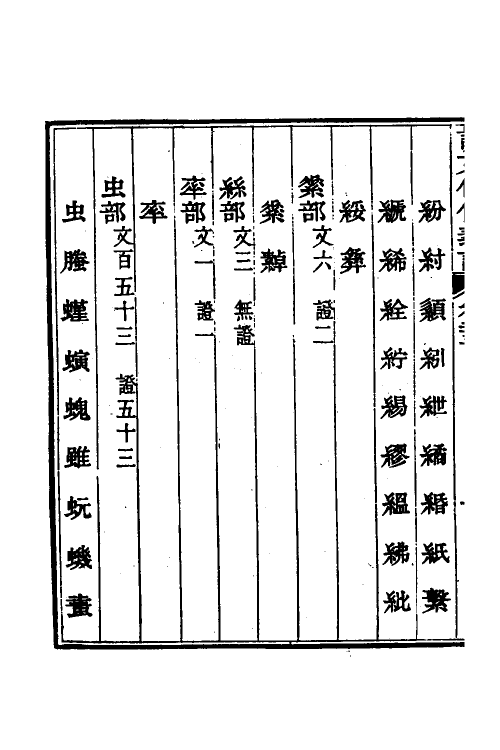 紛 紂 纇 紖 紲 繘 緍 紙 繫
縗 絺 絟 紵 緆 繆 緼 紼 紕
綏 彝
素部 文六 證二
素 𦃃
絲部 文三 無證
率部 文一 證一
率
虫部 文百五十三 證五十三
虫 螣 螼 螾 螝 雖 蚖 蟣 蚩